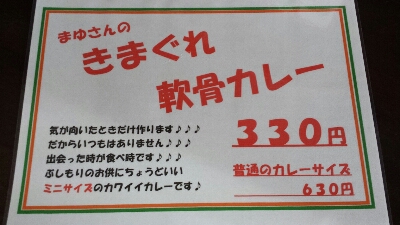 まゆさんの
きまぐれ
軟骨カレー
気が向いたときだけ作ります♪♪♪
だからいつもはありません♪♪♪
出会った時が食べ時です♪♪♪
ぶしもりのお供にちょうどいい
ミニサイズのカワイイカレーです♪
330円
普通のカレーサイズ
630円